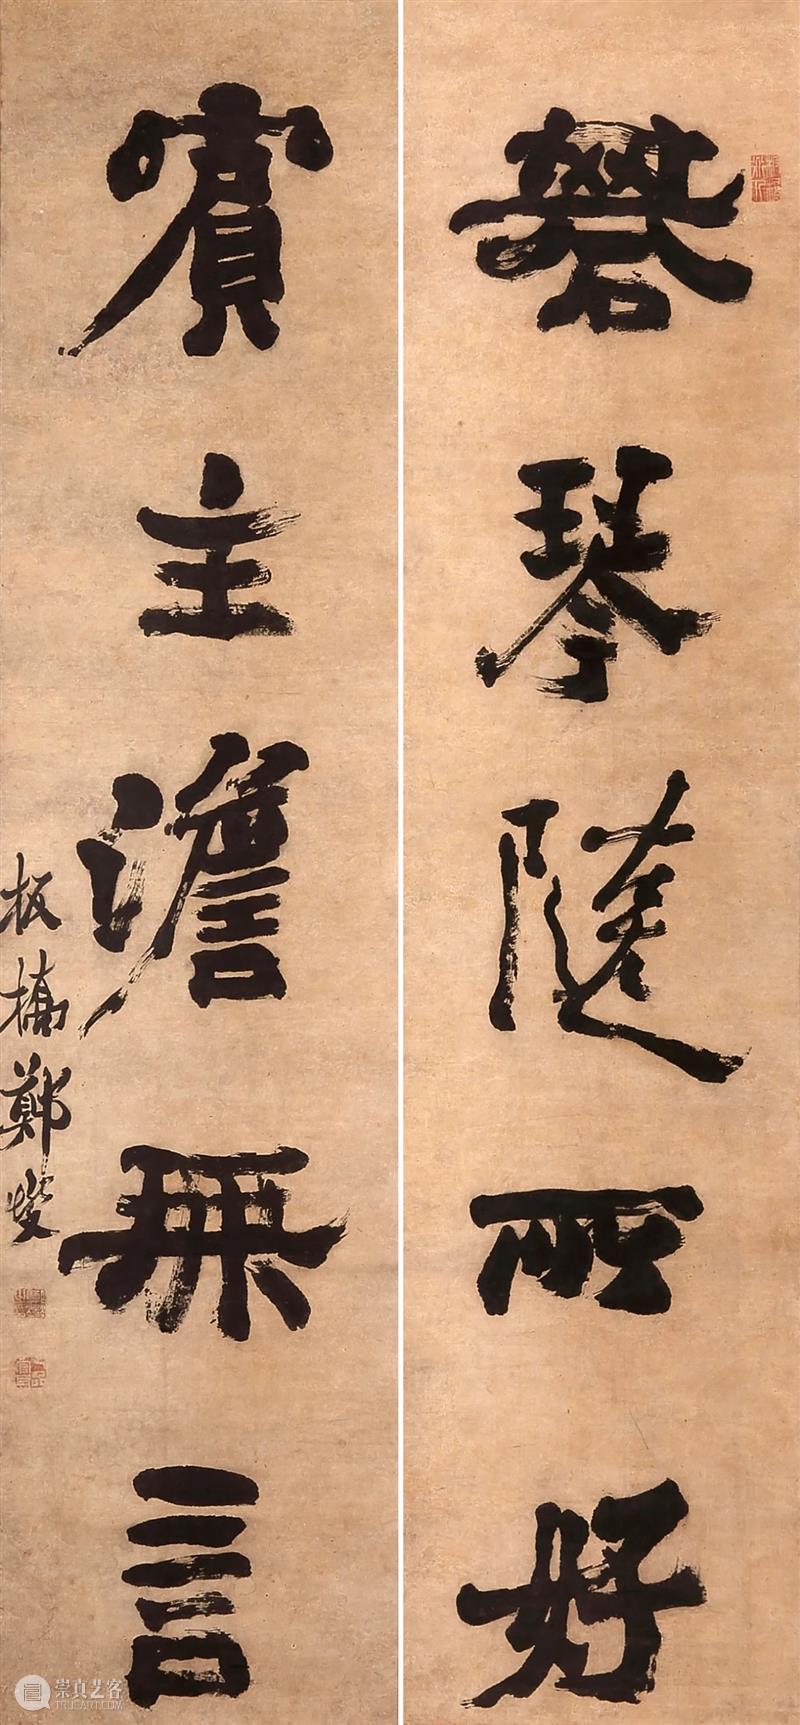 碁琴隨所好
賓主澹無言
板橋鄭燮
崇真艺客
TRUEART.COM